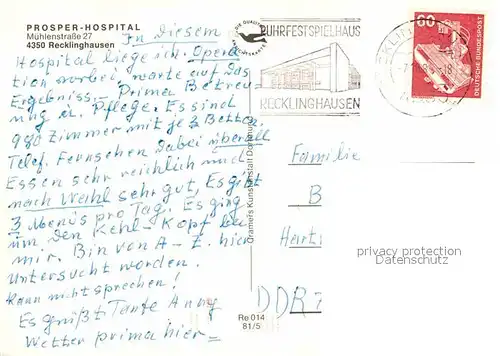 PROSPER-HOSPITAL
Mühlenstraße 27
4350 Recklinghausen
In diesem
Hospital liege ich. Opera
tion vorbei, warte auf das
Ergebniss. Prima Betreu-
ung u. Pflege. Es sind
980 Zimmer mit je 3 Betten.
Telef. Fernsehen dabei überall
Essen sehr reichlich und
nach Wahl sehr gut, Es gibt
3 Menüs pro Tag. Es ging
um den Kehl-Kopf bei
mir. Bin von A-Z. hier
untersucht worden.
Kann nicht sprechen!
Es grüßt Tante Anny
Wetter prima hier-
RUHRFESTSPIELHAUS
RECKLINGHAUSEN
60
DEUTSCHE BUNDESPOST
Cramers Kunstanstalt Dortmund
Re 014
81/5
Familie
B
Hart
DDR 7
privacy protection
Datenschutz